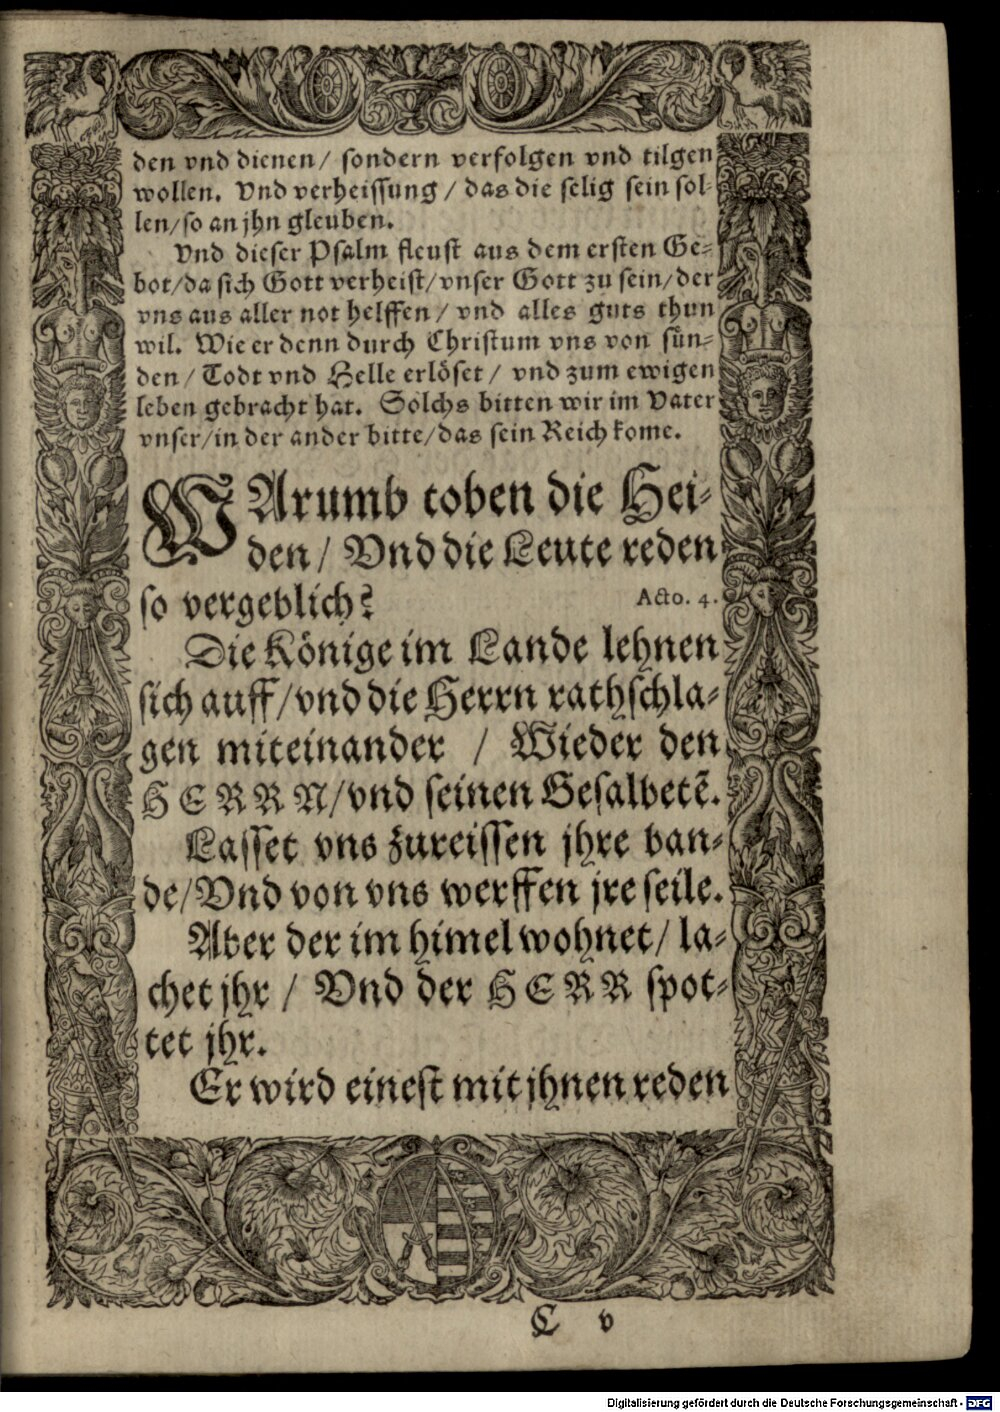 den vnd dienen/ sondern verfolgen vnd tilgen
wollen. Vnd verheissung/ das die selig sein sol-
len/so an jhn gleuben.
Vnd dieser Psalm fleust aus dem ersten Ge-
bot/da sich Gott verheist/vnser Gott zu sein/der
vns aus aller not helffen/ vnd alles guts thun
wil. Wie er denn durch Christum vns von sün-
den/ Todt vnd Helle erlöset/ vnd zum ewigen
leben gebracht hat. Solchs bitten wir im Vater
vnser/in der ander bitte/das sein Reich kome.
WArumb toben die Hei-
den/ Vnd die Leute reden
so vergeblich?
Acto. 4.
Die Könige im Lande lehnen
sich auff/vnd die Herrn rathschla-
gen miteinander / Wieder den
HERRN/vnd seinen Gesalbetē.
Lasset vns zureissen jhre ban-
de/Vnd von vns werffen jre seile.
Aber der im himel wohnet/ la-
chet jhr/ Vnd der HERR spot-
tet jhr.
Er wird einest mit jhnen reden
C v
Digitalisierung gefördert durch die Deutsche Forschungsgemeinschaft - DFG